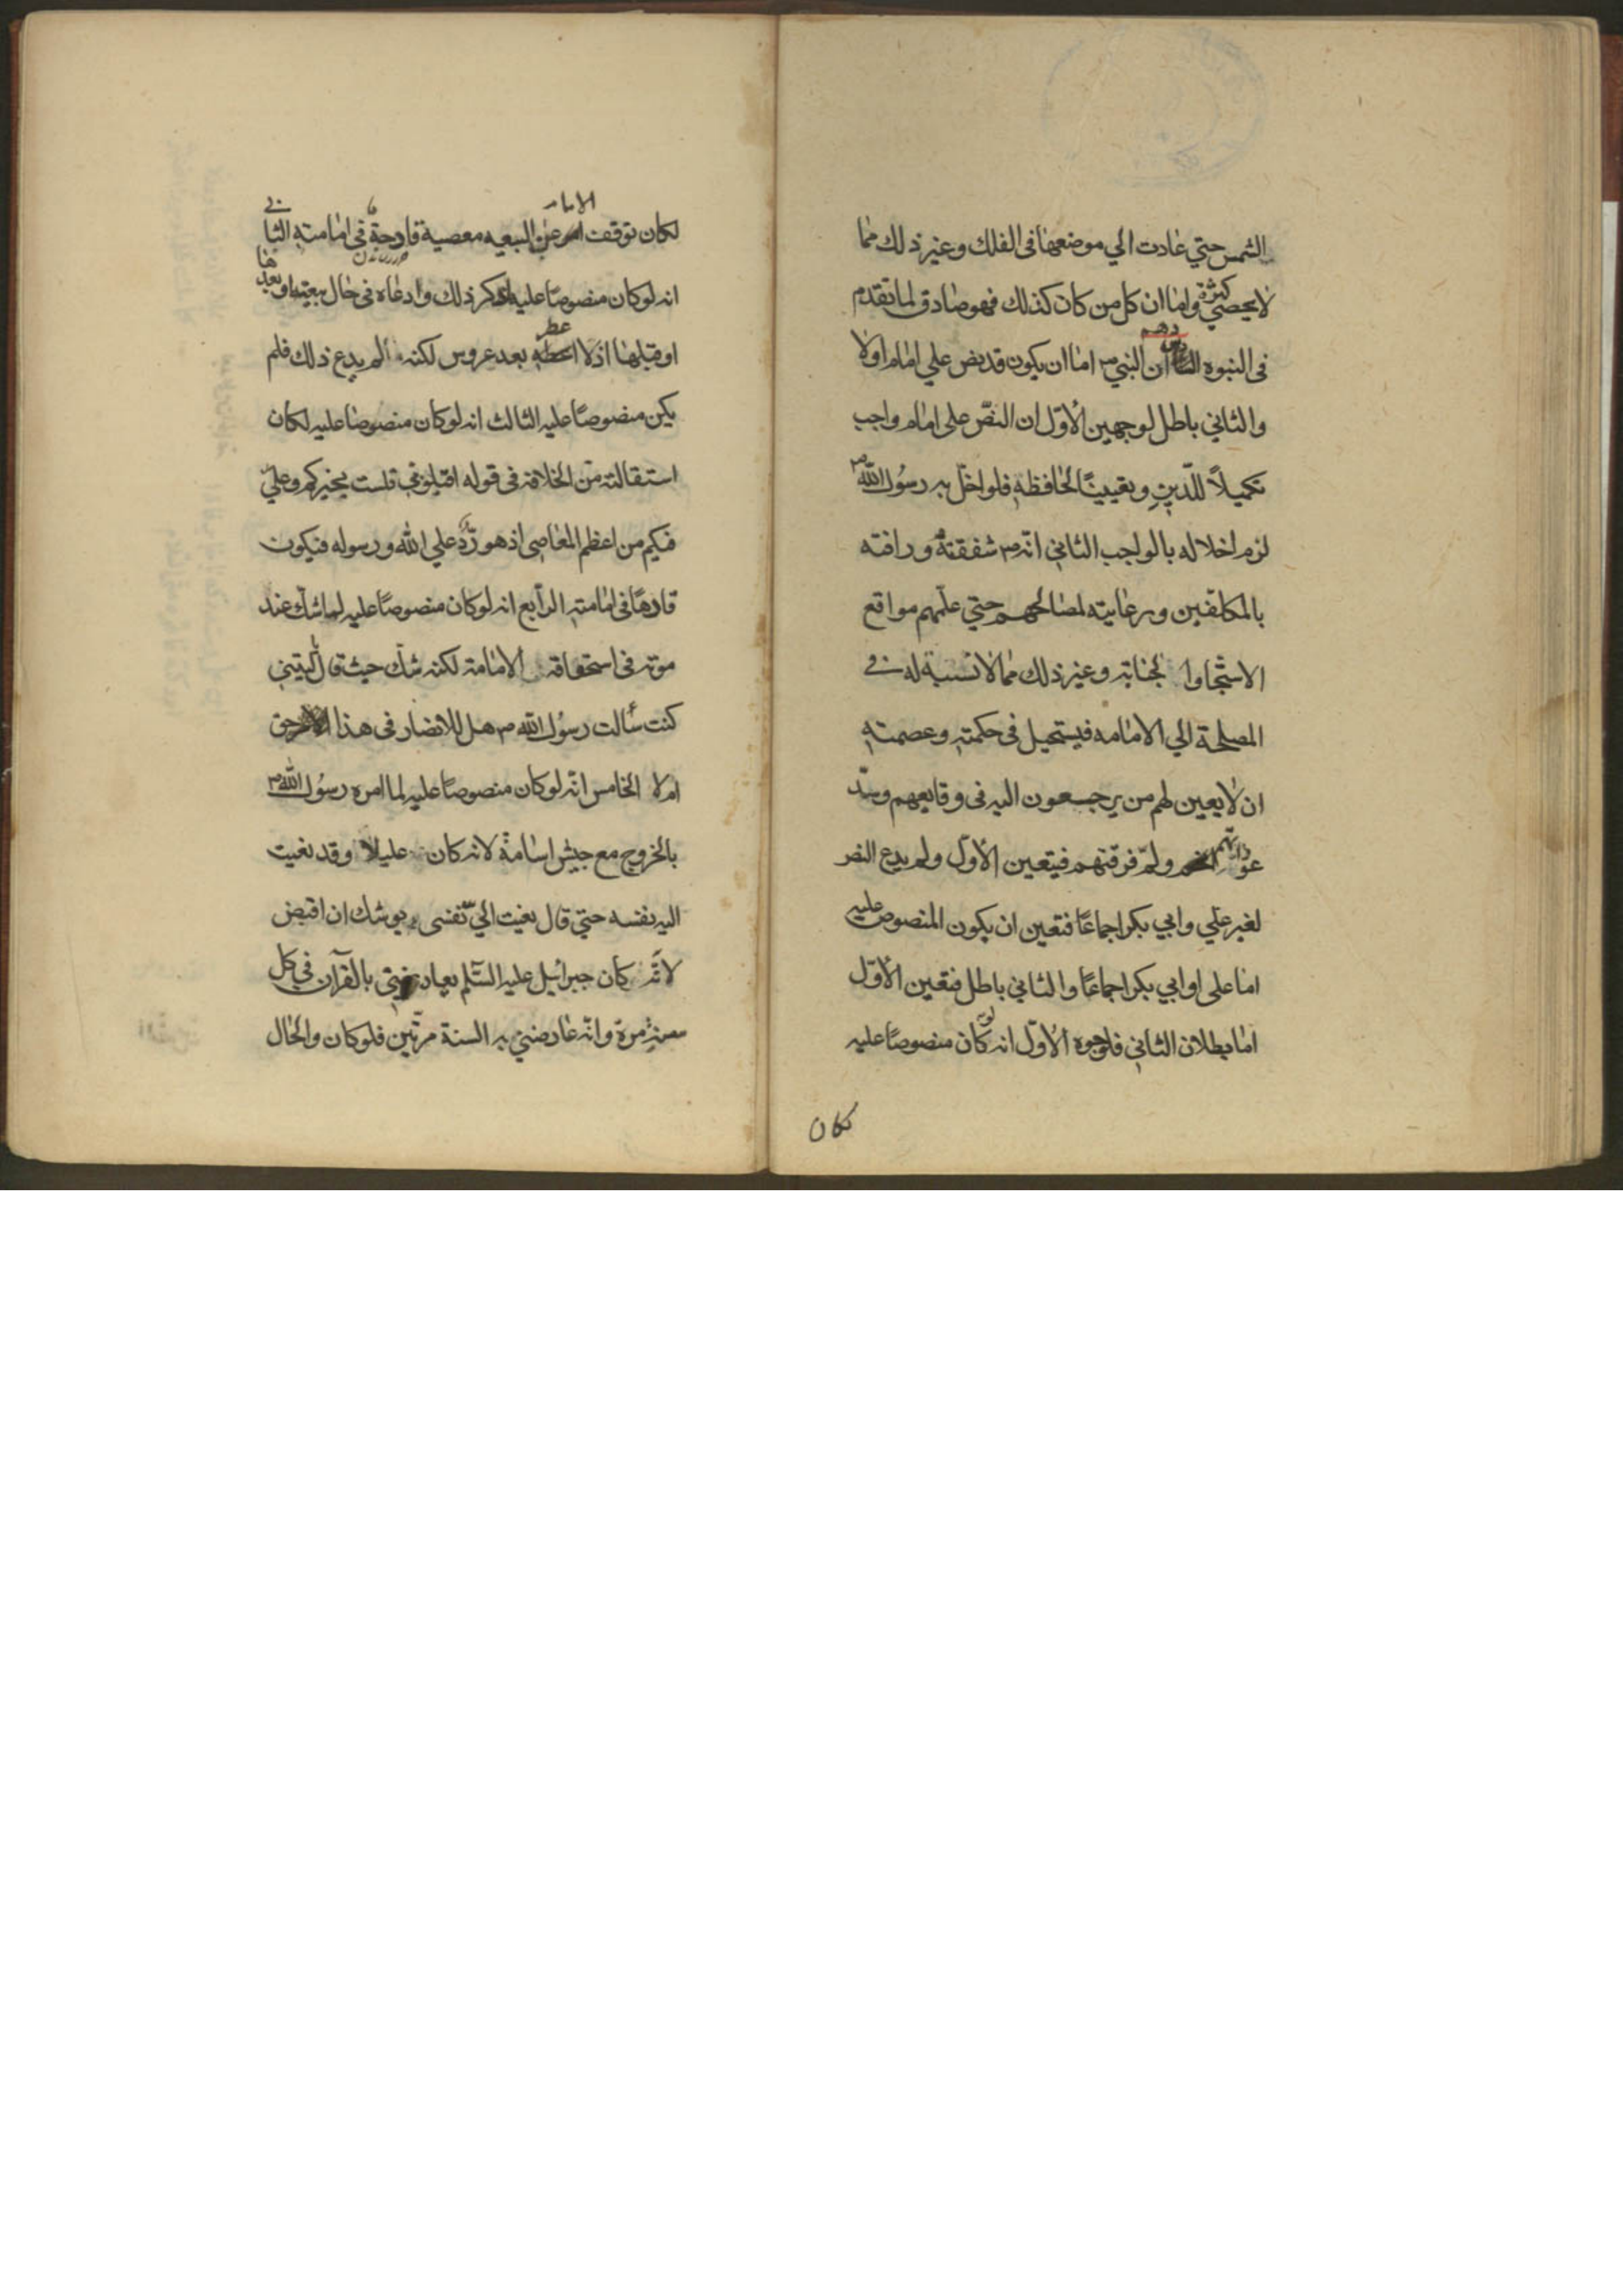 الشمس حتي عادت الي موضعها فى الفلك وغير ذلك مما
لا يحصي كثرة واما ان كل من كان كذلك فهو صادق لما تقدم
فى النبوة ان النبي ص اما ان يكون قد نص علي امام اولا
والثاني باطل لوجهين الأوّل ان النصّ علي امام واجب
تكميلاً للدّين وتعيينًا لحافظه فلو اخلّ به رسُول اللّٰه ص
لزم اخلاله بالواجب الثاني انّه ص شفقته ورافته
بالمكلفين ورعايته لمصالحهم حتي علّمهم مواقع
الاستنجا والجنابة وغير ذلك مما لا نسبة له في
المصلحة الي الامامه فيستحيل فى حكمته وعصمته
ان لا يعين لهم من يرجعون اليه فى وقايعهم وسدّ
عوراتهم ولمّ فرقتهم فيتعين الأوّل ولم يدع النص
لغير علي وابي بكر اجماعًا فتعين ان يكون المنصوص عليه
اما علي او ابي بكر اجماعًا والثاني باطل فتعين الأوّل
اما بطلان الثاني فلوجوه الأوّل انه لو كان منصوصًا عليه
لكان
لكان توقف الامر عن البيعه معصية قادحة في امامته الثاني
انه لو كان منصوصًا عليه لذكر ذلك وادعاه فى حال بيعته او بعدها
او قبلها اذ لا عطر بعد عروس لكنه لم يدع ذلك فلم
يكن منصوصًا عليه الثالث انه لو كان منصوصا عليه لكان
استقالته من الخلافه فى قوله اقيلوني فلست بخيركم وعليّ
فيكم من اعظم المعاصى اذ هو ردّ علي اللّٰه ورسوله فيكون
قادحًا فى امامته الرابع انه لو كان منصوصًا عليه لما شكّ عند
موته فى استحقاقه الامامة لكنه شكّ حيث قال ليتني
كنت سألت رسُول اللّٰه ص هل للانصار فى هذا الامر حق
ام لا الخامس انّه لو كان منصوصًا عليه لما امره رسُول اللّٰه ص
بالخروج مع جيش اسامة لانه كان عليلا وقد نعيت
اليه نفسه حتي قال نعيت اليّ نفسى ويوشك ان اقبض
لأنّه كان جبرائيل عليه السّلم يعارضني بالقرآن في كل
سنةٍ مرة وانّه عارضني به السنة مرّتين فلو كان والحال